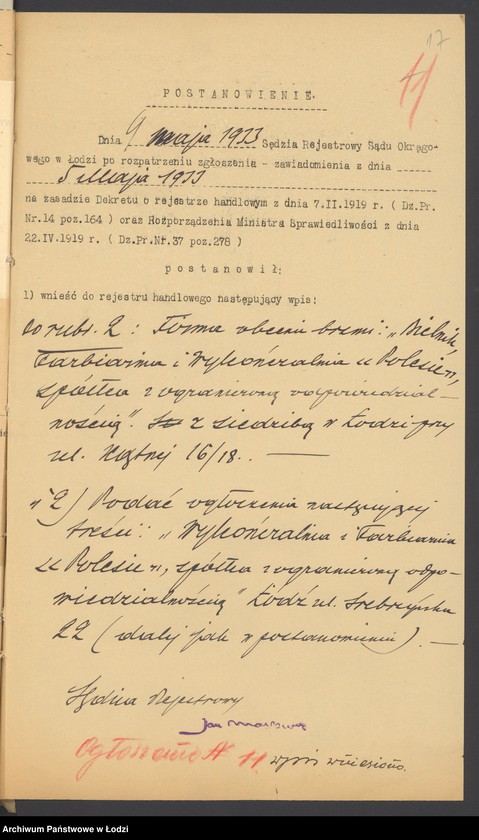 17
11
POSTANOWIENIE.
Dnia 9 maja 1933 Sędzia Rejestrowy Sądu Okręgo-
wego w Łodzi po rozpatrzeniu zgłoszenia - zawiadomienia z dnia
5 Maja 1933
na zasadzie Dekretu o rejestrze handlowym z dnia 7.II.1919 r. ( Dz.Pr.
Nr.14 poz.164 ) oraz Rozporządzenia Ministra Sprawiedliwości z dnia
22.IV.1919 r. ( Dz.Pr.Nr.37 poz.278 )
postanowił:
1) wnieść do rejestru handlowego następujący wpis:
do rubr. 2 : Firma obecnie brzmi: „Bielnik,
Farbiarnia i Wykończalnia „Polesie",
spółka z ograniczoną odpowiedzial-
nością". z siedzibą w Łodzi przy
ul. Kątnej 16/18. —
2) Podać ogłoszenia następującej
treści: „Wykończalnia i Farbiarnia
„Polesie", spółka z ograniczoną odpo-
wiedzialnością" Łódź ul. Srebrzyńska
22 (dalej jak w postanowieniu). —
Sędzia Rejestrowy
Ogłoszono N 11 wpis wniesiono.
Archiwum Państwowe w Łodzi